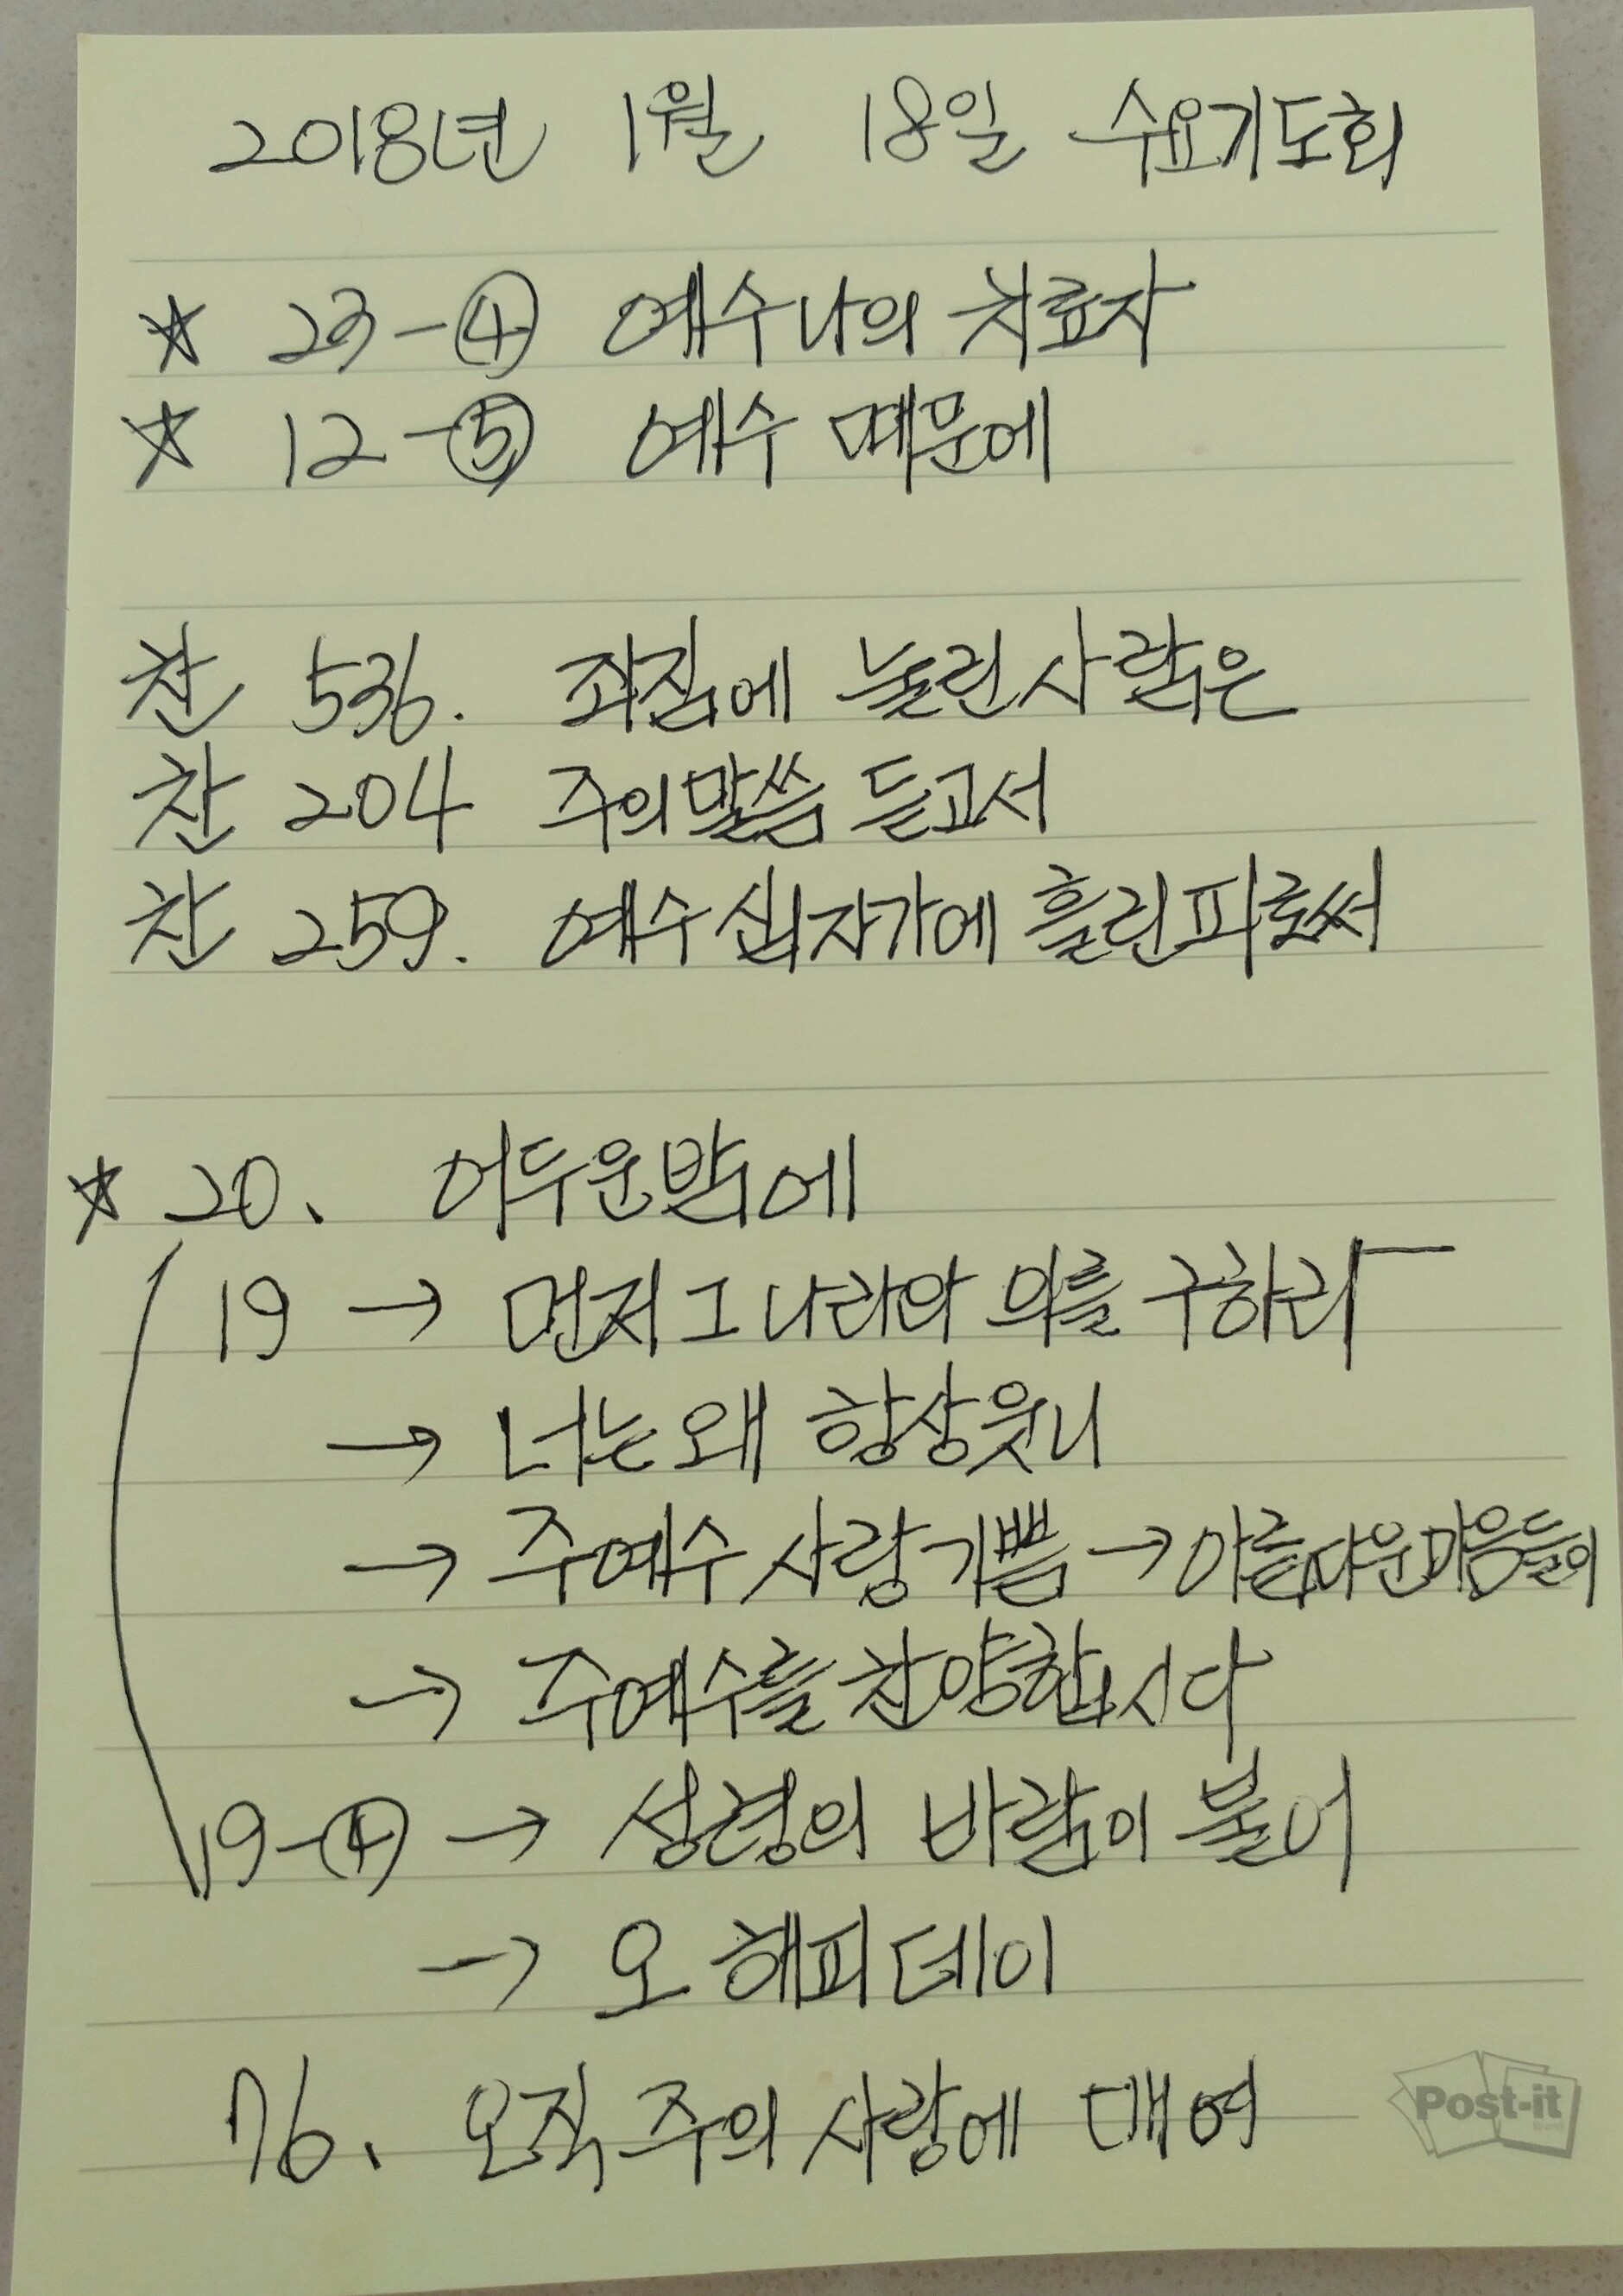 2018년 1월 18일 수요기도회
☆ 23-④ 예수 나의 치료자
☆ 12-⑤ 예수 때문에
찬 536. 죄짐에 눌린 사람은
찬 204 주의 말씀 듣고서
찬 259. 예수 십자가에 흘린 피로써
☆ 20. 어두운 밤에
19 → 먼저 그 나라와 의를 구하라
→ 너는 왜 항상 웃니
→ 주 예수 사랑 기쁨 → 아름다운 마음들이
→ 주 예수를 찬양합시다
19-④ → 성령의 바람이 불어
→ 오 해피데이
76. 오직 주의 사랑에 매여
Post-it